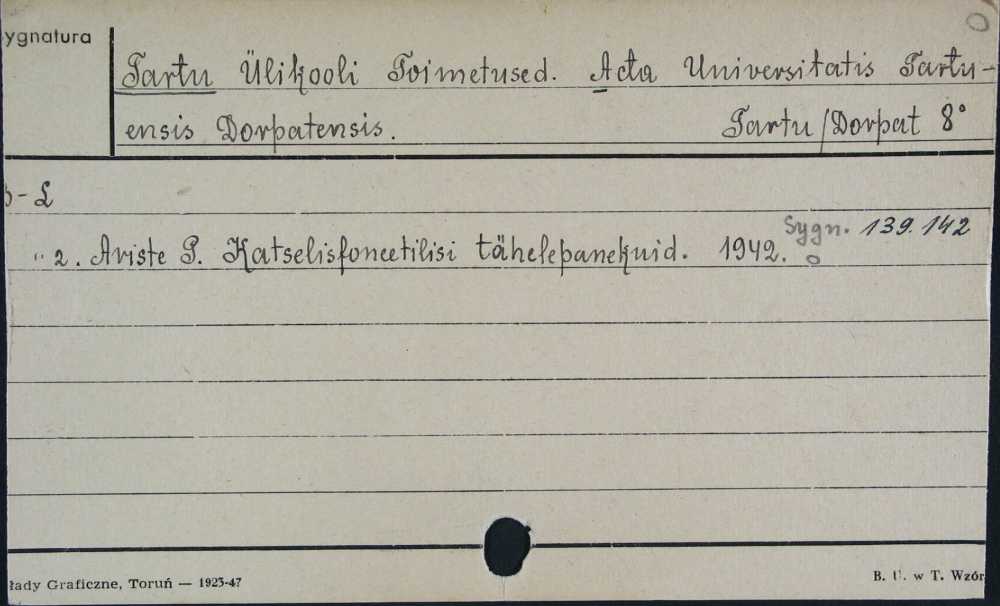 ygnatura
Tartu Ülikooli Toimetused. Acta Universitatis Tartu-
ensis Dorpatensis. Tartu/Dorpat 8°
B-L
Sygn. 139.142
" 2. Ariste P. Katselisfoneetilisi tähelepanekuid. 1942.
łady Graficzne, Toruń — 1923-47
B. U. w T. Wzór